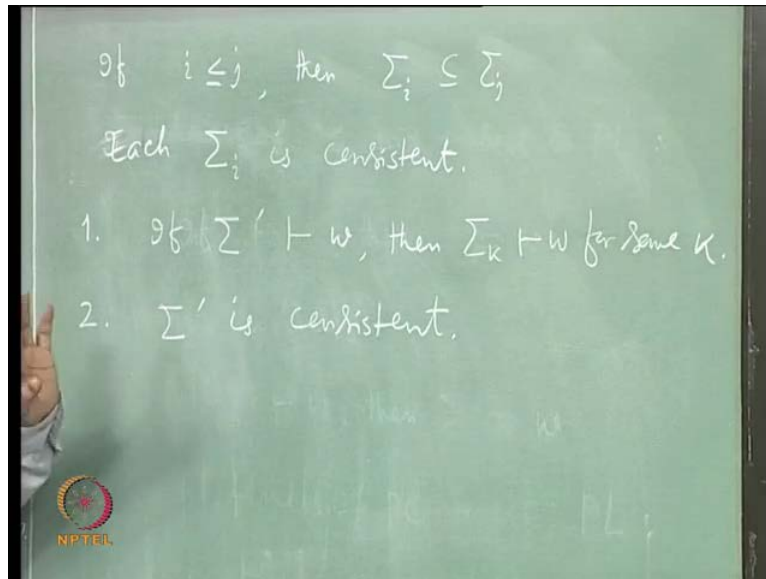 If i ≤ j, then Σ_i ⊆ Σ_j
Each Σ_i is consistent.
1. If Σ' ⊢ w, then Σ_K ⊢ w for some K.
2. Σ' is consistent.
NPTEL